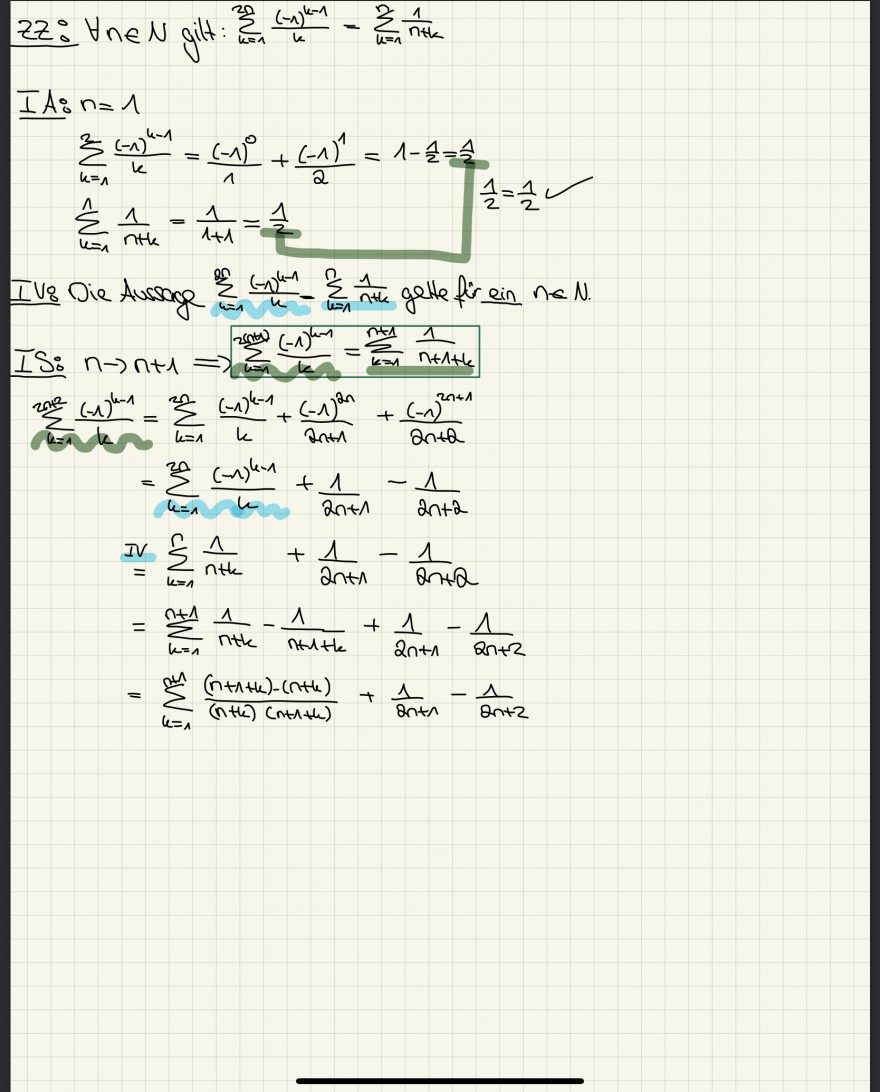 ZZ: ∀n∈N gilt: ∑_{k=1}^{2n} (-1)^{k-1}/k = ∑_{k=1}^{n} 1/(n+k)
IA: n=1
∑_{k=1}^{2} (-1)^{k-1}/k = (-1)^0/1 + (-1)^1/2 = 1 - 1/2 = 1/2
1/2 = 1/2 ✓
∑_{k=1}^{1} 1/(n+k) = 1/(1+1) = 1/2
IV: Die Aussage ∑_{k=1}^{2n} (-1)^{k-1}/k = ∑_{k=1}^{n} 1/(n+k) gelte für ein n∈N.
IS: n→n+1 ⟹ ∑_{k=1}^{2(n+1)} (-1)^{k-1}/k = ∑_{k=1}^{n+1} 1/(n+1+k)
∑_{k=1}^{2n+2} (-1)^{k-1}/k = ∑_{k=1}^{2n} (-1)^{k-1}/k + (-1)^{2n}/(2n+1) + (-1)^{2n+1}/(2n+2)
= ∑_{k=1}^{2n} (-1)^{k-1}/k + 1/(2n+1) - 1/(2n+2)
IV = ∑_{k=1}^{n} 1/(n+k) + 1/(2n+1) - 1/(2n+2)
= ∑_{k=1}^{n+1} 1/(n+k) - 1/(n+1+k) + 1/(2n+1) - 1/(2n+2)
= ∑_{k=1}^{n+1} ((n+1+k)-(n+k))/((n+k)(n+1+k)) + 1/(2n+1) - 1/(2n+2)